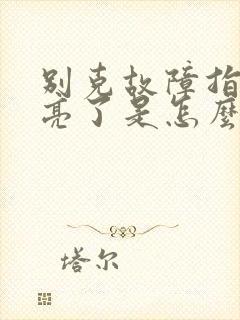 别克故障指
亮了是怎麽
塔尔